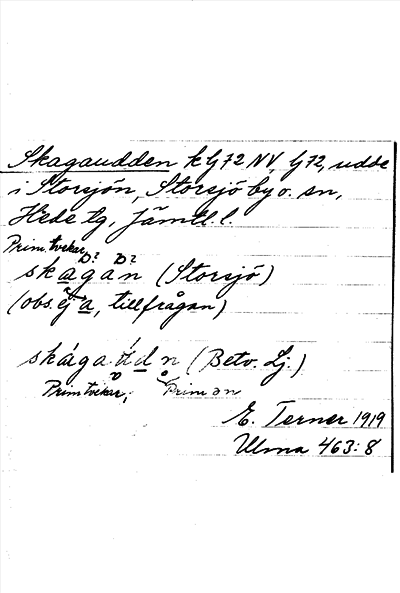 Skagaudden k G72 NV, G72, udde
i Storsjön, Storsjö by o. sn,
Hede tg, Jämtl. l.
Prim. tvekar
ɒ? ɒ?
skagan (Storsjö)
(obs. ej a, tillfrågan)
skága údn (Betv. Lj.)
Prim tvekar, Prim ən
E. Terner 1919
Ulma 463:8